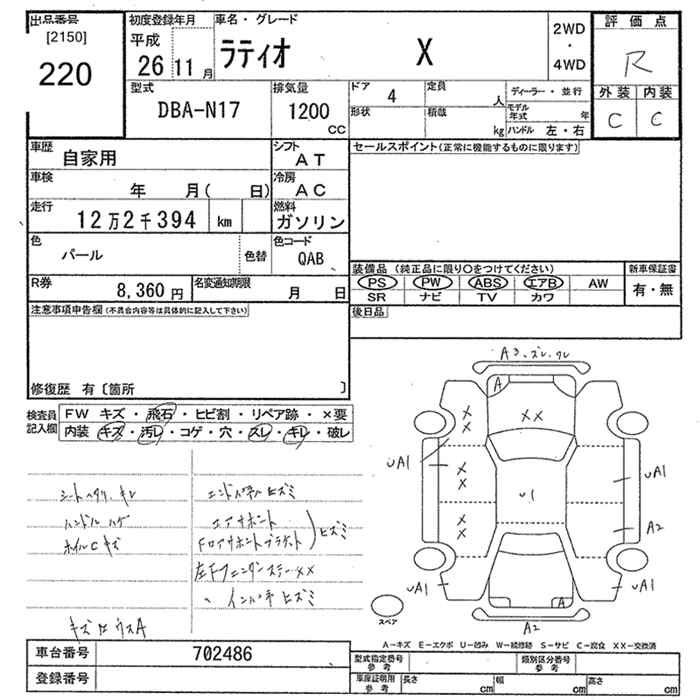 出品番号
[2150]
220
初度登録年月
平成
26 11 月
車名・グレード
ラティオ X
2WD
・
4WD
評価点
R
外装 内装
C C
型式
DBA-N17
排気量
1200
CC
ドア 4
定員 人
形状
積載 kg
ディーラー・並行
モデル年式 年
ハンドル 左・右
車歴
自家用
シフト
AT
車検
年 月( 日)
冷房
AC
走行
12万2千394 km
燃料
ガソリン
色
パール
色替
色コード
QAB
R券
8,360 円
名変通知期限
月 日
セールスポイント(正常に機能するものに限ります)
装備品 (純正品に限り○をつけてください)
PS PW ABS エアB AW
SR ナビ TV カワ
新車保証書
有・無
後日品
注意事項申告欄(不具合内容等は具体的に記入して下さい)
修復歴 有〔箇所 〕
検査員記入欄
FW キズ・飛石・ヒビ割・リペア跡・×要
内装・キズ・汚レ・コゲ・穴・スレ・キレ・破レ
シートヘタリ、キレ
ハンドル ハゲ
ホイルC キズ
エアサポート
Fロアサポートブラケット
ヒズミ
左Fフェンダーステー××
〃 インパネ ヒズミ
A3、ズレ、ワレ
A
××
××
××
××
U1
UA1
UA1
UA1
A2
UA1
A
A2
スペア
A―キズ E―エクボ U―凹み W―補修跡 S―サビ C―腐食 XX―交換済
車台番号
702486
登録番号
型式指定番号
参考
類別区分番号
参考
車庫証明用
参考
長さ cm
幅 cm
高さ cm